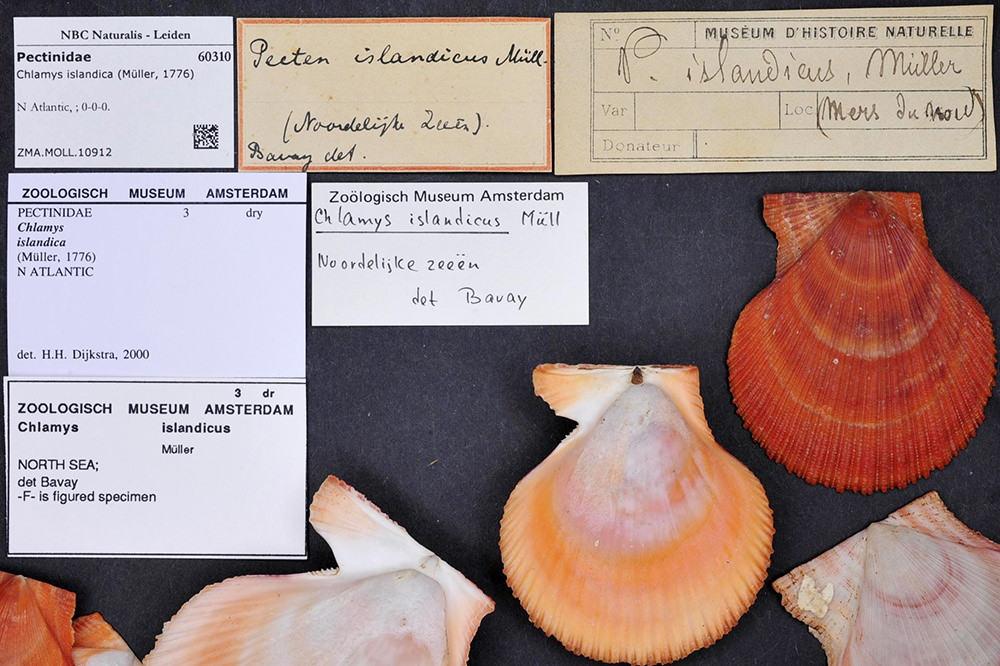 NBC Naturalis - Leiden
Pectinidae 60310
Chlamys islandica (Müller, 1776)
N Atlantic, ; 0-0-0.
ZMA.MOLL.10912
Pecten islandicus Müll.
(Noordelijke Zeeën).
Bavay det.
No MUSÉUM D'HISTOIRE NATURELLE
P. islandicus, Müller
Var Loc (Mers du nord)
Donateur
ZOOLOGISCH MUSEUM AMSTERDAM
PECTINIDAE 3 dry
Chlamys
islandica
(Müller, 1776)
N ATLANTIC
det. H.H. Dijkstra, 2000
Zoölogisch Museum Amsterdam
Chlamys islandicus Müll
Noordelijke zeeën
det Bavay
3 dr
ZOOLOGISCH MUSEUM AMSTERDAM
Chlamys islandicus
Müller
NORTH SEA;
det Bavay
-F- is figured specimen